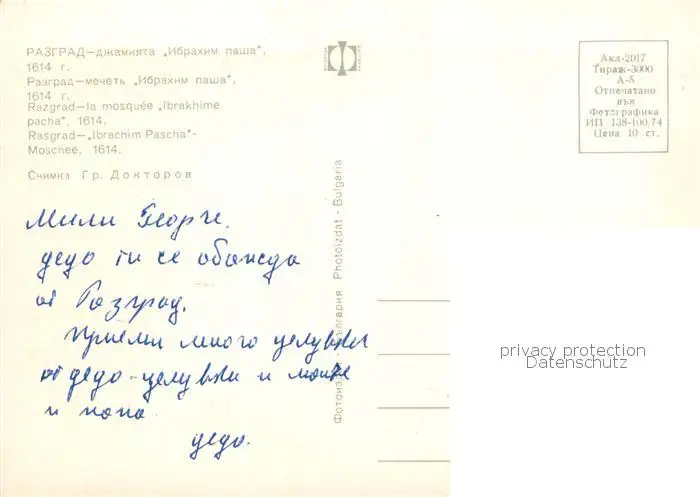 РАЗГРАД—джамията „Ибрахим паша",
1614 г.
Разград—мечеть „Ибрахим паша",
1614 г.
Razgrad—la mosquée „Ibrakhime
pacha", 1614.
Rasgrad—„Ibrachim Pascha"-
Moschee, 1614.
Снимка Гр. Докторов
Акл-2017
Тираж-3000
А-5
Отпечатано
във
Фотографика
ИП 138-100/74
Цена 10 ст.
Photoizdat - Bulgaria
Мили Георги,
дядо ти се обажда
от Разград.
Приеми много целувки
от дядо - целувки и
и папа
дядо.
privacy protection
Datenschutz